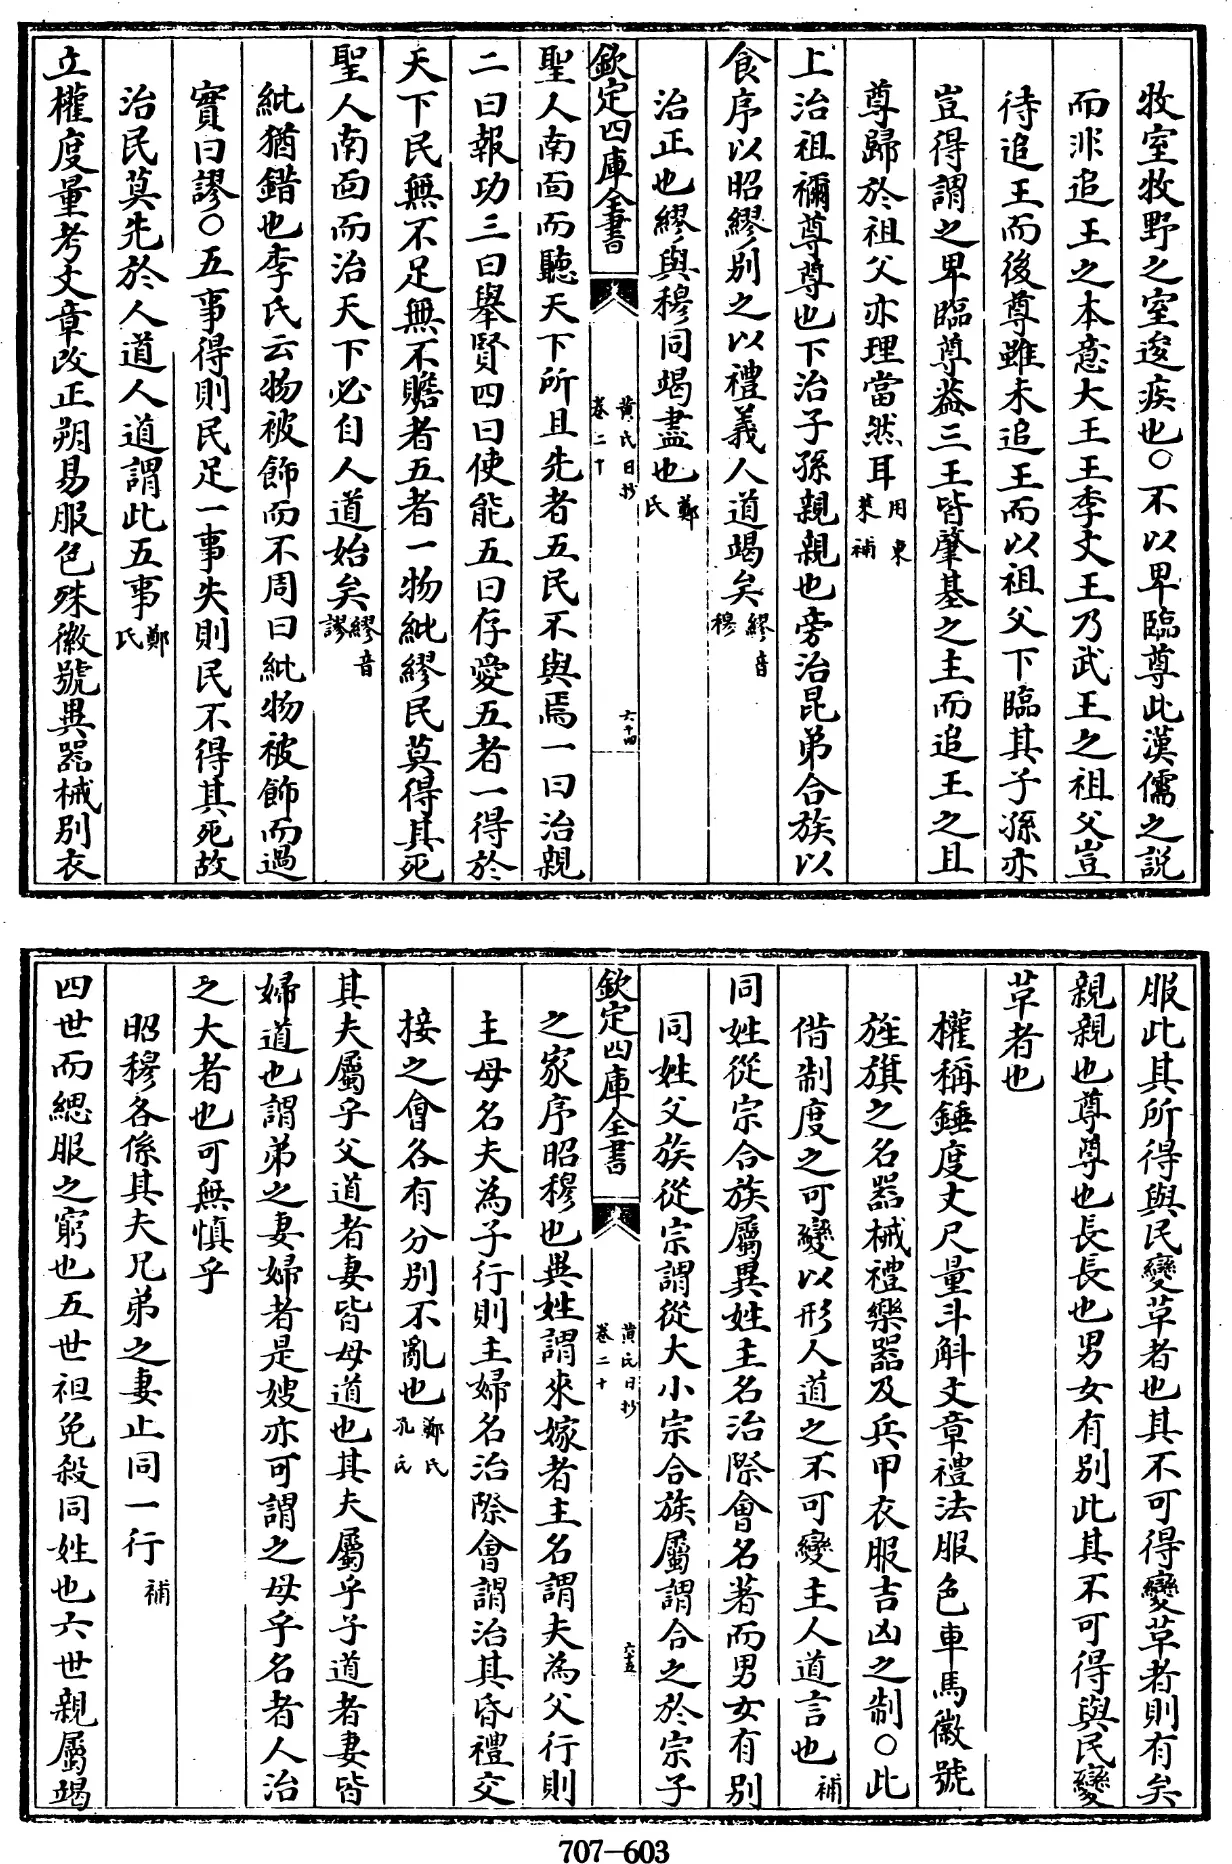 牧室牧野之室逡疾也○不以卑臨尊此漢儒之説
而非追王之本意大王王季文王乃武王之祖父豈
待追王而後尊雖未追王而以祖父下臨其子孫亦
豈得謂之卑臨尊益三王皆肇基之主而追王之且
尊歸於祖父亦理當然耳用東萊補
上治祖禰尊尊也下治子孫親親也旁治昆弟合族以
食序以昭繆别之以禮義人道竭矣繆音穆
治正也繆與穆同竭盡也鄭氏
欽定四庫全書
黄氏日抄
卷二十
六十四
聖人南面而聽天下所且先者五民不與焉一曰治親
二曰報功三曰舉賢四曰使能五曰存愛五者一得於
天下民無不足無不贍者五者一物紕繆民莫得其死
聖人南面而治天下必自人道始矣繆音謬
紕猶錯也李氏云物被飾而不周曰紕物被飾而過
實曰謬○五事得則民足一事失則民不得其死故
治民莫先於人道人道謂此五事鄭氏
立權度量考文章改正朔易服色殊徽號異器械别衣
服此其所得與民變革者也其不可得變革者則有矣
親親也尊尊也長長也男女有别此其不可得與民變
革者也
權稱錘度丈尺量斗斛文章禮法服色車馬徽號
旌旗之名器械禮樂器及兵甲衣服吉凶之制○此
偕制度之可變以形人道之不可變主人道言也補
同姓從宗合族屬異姓主名治際會名著而男女有别
同姓父族從宗謂從大小宗合族屬謂合之於宗子
欽定四庫全書
黄氏日抄
卷二十
六十五
之家序昭穆也異姓謂來嫁者主名謂夫為父行則
主母名夫為子行則主婦名治際會謂治其昏禮交
接之會各有分别不亂也鄭氏孔氏
其夫屬乎父道者妻皆母道也其夫屬乎子道者妻皆
婦道也謂弟之妻婦者是嫂亦可謂之母乎名者人治
之大者也可無慎乎
昭穆各係其夫兄弟之妻止同一行補
四世而緦服之窮也五世袒免殺同姓也六世親屬竭
707-603